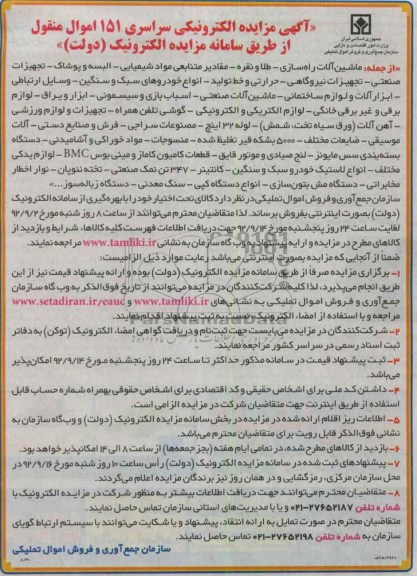 جمهوری اسلامی ایران
وزارت امور اقتصادی و دارایی
سازمان جمع‌آوری و فروش اموال تملیکی
«آگهی مزایده الکترونیکی سراسری ۱۵۱ اموال منقول
از طریق سامانه مزایده الکترونیک (دولت)»
«از جمله: ماشین‌آلات راه‌سازی - طلا و نقره - مقادیر متنابهی مواد شیمیایی - البسه و پوشاک - تجهیزات
صنعتی - تجهیزات نیروگاهی - حرارتی و خط تولید - انواع خودروهای سبک و سنگین - وسایل ارتباطی
- ابزارآلات و لوازم ساختمانی - ماشین‌آلات صنعتی - اسباب بازی و سیسمونی - ابزار و یراق - لوازم
برقی و غیر برقی خانگی - لوازم الکتریکی و الکترونیکی - گوشی تلفن همراه - تجهیزات و لوازم ورزشی
- آهن آلات (ورق سیاه تخت، شمش) - لوله ۳۲ اینچ - مصنوعات سراجی - فرش و صنایع دستی - آلات
موسیقی - ضایعات مختلف - ۵۰۰۰ بشکه قیر تغلیظ شده - منسوجات - مواد خوراکی و آشامیدنی - دستگاه
بسته‌بندی سس مایونز - لنج صیادی و موتور قایق - قطعات کامیون کاماز و مینی بوس BMC - لوازم یدکی
مختلف - انواع لاستیک خودرو سبک و سنگین - کانتینر - ۳۴۷ تن نمک صنعتی - تخته نئوپان - نوار اخطار
مخابراتی - دستگاه مش بتون‌سازی - انواع دستگاه کپی - سنگ معدنی - دستگاه زباله‌سوز....»
سازمان جمع‌آوری و فروش اموال تملیکی در نظر دارد کالای تحت اختیار خود را با بهره‌گیری از سامانه الکترونیک
(دولت) بصورت اینترنتی بفروش برساند. لذا متقاضیان محترم می‌توانند از ساعت ۸ روز شنبه مورخ ۹۲/۹/۲
لغایت ساعت ۲۴ روز پنجشنبه مورخ ۹۲/۹/۱۴ جهت دریافت اطلاعات فهرست کلیه کالاها، شرایط و بازدید از
کالاهای مطرح در مزایده و ارایه پیشنهاد به وب گاه سازمان به نشانی www.tamliki.ir مراجعه نمایند.
ضمناً از آنجایی که مزایده بصورت اینترنتی می‌باشد رعایت موارد ذیل الزامیست:
۱- برگزاری مزایده صرفاً از طریق سامانه مزایده الکترونیک (دولت) بوده و ارائه پیشنهاد قیمت نیز از این
طریق انجام می‌پذیرد، لذا کلیه شرکت‌کنندگان در مزایده می‌توانند از تاریخ فوق الذکر به وب گاه سازمان
جمع‌آوری و فروش اموال تملیکی به نشانی‌های www.tamliki.ir و www.setadiran.ir/eauc
مراجعه و با استفاده از امضاء الکترونیک، نسبت به ثبت پیشنهاد اقدام نمایند.
۲- شرکت‌کنندگان در مزایده می‌بایست جهت ثبت‌نام و دریافت گواهی امضاء الکترونیک (توکن) به دفاتر
ثبت اسناد رسمی در سراسر کشور مراجعه نمایند.
۳- ثبت پیشنهاد قیمت در سامانه مذکور حداکثر تا ساعت ۲۴ روز پنجشنبه مورخ ۹۲/۹/۱۴ امکان‌پذیر
می‌باشد.
۴- داشتن کد ملی برای اشخاص حقیقی و کد اقتصادی برای اشخاص حقوقی بهمراه شماره حساب قابل
استفاده از طریق اینترنت جهت متقاضیان شرکت در مزایده الزامی است.
۵- اطلاعات ریز اقلام ارائه شده در مزایده در بخش سامانه مزایده الکترونیک (دولت) و وب‌گاه سازمان به
نشانی فوق الذکر قابل رویت برای متقاضیان محترم می‌باشد.
۶- بازدید از کالاهای مطرح شده، در تمامی ایام هفته (بجز جمعه‌ها) از ساعت ۸ الی ۱۴ امکانپذیر خواهد بود.
۷- پیشنهادهای ثبت شده در سامانه مزایده الکترونیک (دولت) رأس ساعت ۱۰ روز شنبه مورخ ۹۲/۹/۱۶ در
محل سازمان مرکزی، رمزگشایی و در همان روز نیز برندگان مزایده اعلام می‌گردند.
۸- متقاضیان محترم می‌توانند جهت دریافت اطلاعات بیشتر به منظور شرکت در مزایده الکترونیک با
شماره تلفن ۲۷۶۵۲۱۸۷-۰۲۱ و یا با مدیریت‌های استانی سازمان تماس حاصل نمایند.
متقاضیان محترم در صورت تمایل به ارائه انتقاد، پیشنهاد و یا شکایت می‌توانند با سیستم ارتباط گویای
سازمان به شماره تلفن ۲۷۶۵۲۱۹۸-۰۲۱ تماس حاصل نمایند.
سازمان جمع‌آوری و فروش اموال تملیکی
ParsNamadData